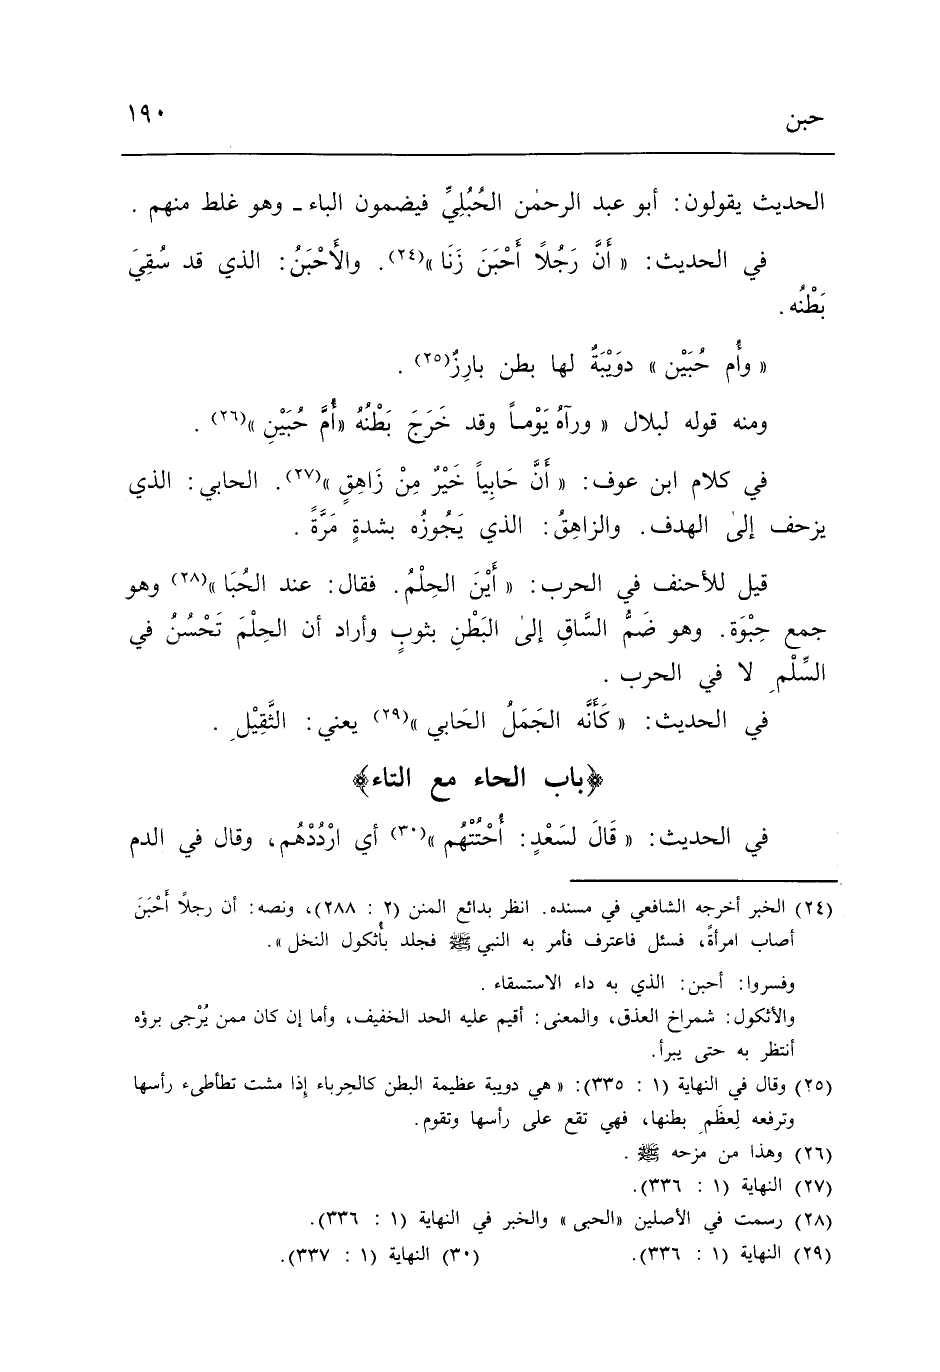 حبن
١٩٠
الحديث يقولون: أبو عبد الرحمٰن الحُبُلِيِّ فيضمون الباء ـ وهو غلط منهم .
في الحديث: « أَنَّ رَجُلاً أَحْبَنَ زَنَا »(٢٤). والأَحْبَنُ: الذي قد سُقِيَ
بَطْنُه .
« وأُم حُبَيْن » دوَيْبَةٌ لها بطن بارِزٌ(٢٥) .
ومنه قوله لبلال « ورآهُ يَوْمـاً وقد خَرَجَ بَطْنُهُ «أُمَّ حُبَيْنِ »(٢٦) .
في كلام ابن عوف: « أَنَّ حَابِياً خَيْرٌ مِنْ زَاهِقٍ »(٢٧). الحابي: الذي
يزحف إلىٰ الهدف. والزاهِقُ: الذي يَجُوزُه بشدةٍ مَرَّةً .
قيل للأحنف في الحرب: « أَيْنَ الحِلْمُ. فقال: عند الحُبَا »(٢٨) وهو
جمع حِبْوَة. وهو ضَمُّ السَّاقِ إلىٰ البَطْنِ بثوبٍ وأراد أن الحِلْمَ تَحْسُنُ في
السِّلْمِ لا في الحرب .
في الحديث: « كَأَنَّه الجَمَلُ الحَابي »(٢٩) يعني: الثَّقِيْلِ .
﴿باب الحاء مع التاء﴾
في الحديث: « قَالَ لسَعْدٍ: أُحْتُتْهُم »(٣٠) أي ارْدُدْهُم، وقال في الدم
(٢٤) الخبر أخرجه الشافعي في مسنده. انظر بدائع المنن (٢ : ٢٨٨)، ونصه: أن رجلاً أَحْبَنَ
أصاب امرأةً، فسئل فاعترف فأمر به النبي ﷺ فجلد بأُثكول النخل ».
وفسروا: أحبن: الذي به داء الاستسقاء .
والأثكول: شمراخ العذق، والمعنى: أقيم عليه الحد الخفيف، وأما إن كان ممن يُرْجى برؤه
أنتظر به حتى يبرأ.
(٢٥) وقال في النهاية (١ : ٣٣٥): « هي دويبة عظيمة البطن كالحِرباء إِذا مشت تطأطىء رأسها
وترفعه لِعظَمِ بطنها، فهي تقع على رأسها وتقوم.
(٢٦) وهذا من مزحه ﷺ .
(٢٧) النهاية (١ : ٣٣٦).
(٢٨) رسمت في الأصلين «الحبى » والخبر في النهاية (١ : ٣٣٦).
(٢٩) النهاية (١ : ٣٣٦). (٣٠) النهاية (١ : ٣٣٧).